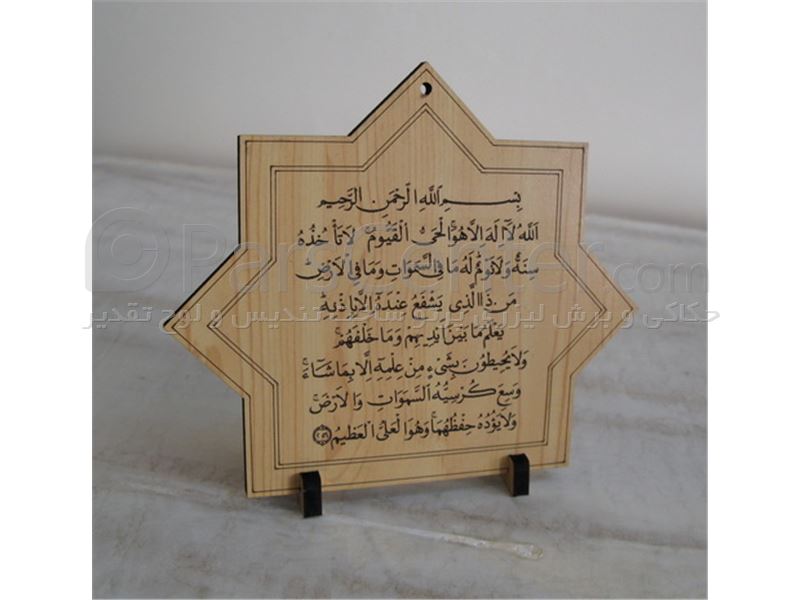 بِسْمِ اللَّهِ الرَّحْمَنِ الرَّحِيمِ
اَللّهُ لَآ اِلَهَ اِلَّا هُوَ الْحَىُّ الْقَيُّومُ لَا تَأْخُذُهُ
سِنَةٌ وَلَا نَوْمٌ لَهُ مَا فِى السَّمَوَاتِ وَمَا فِى الْاَرْضِ
مَنْ ذَا الَّذِى يَشْفَعُ عِنْدَهُ اِلَّا بِاِذْنِهِ
يَعْلَمُ مَا بَيْنَ اَيْدِيهِمْ وَمَا خَلْفَهُمْ
وَلَا يُحِيطُونَ بِشَىْءٍ مِنْ عِلْمِهِ اِلَّا بِمَا شَآءَ
وَسِعَ كُرْسِيُّهُ السَّمَوَاتِ وَالْاَرْضَ
وَلَا يَؤُدُهُ حِفْظُهُمَا وَهُوَ الْعَلِىُّ الْعَظِيمُ
© Parscenter.com
حکاکی و برش لیزری پرتو ساخت تندیس و لوح تقدیر